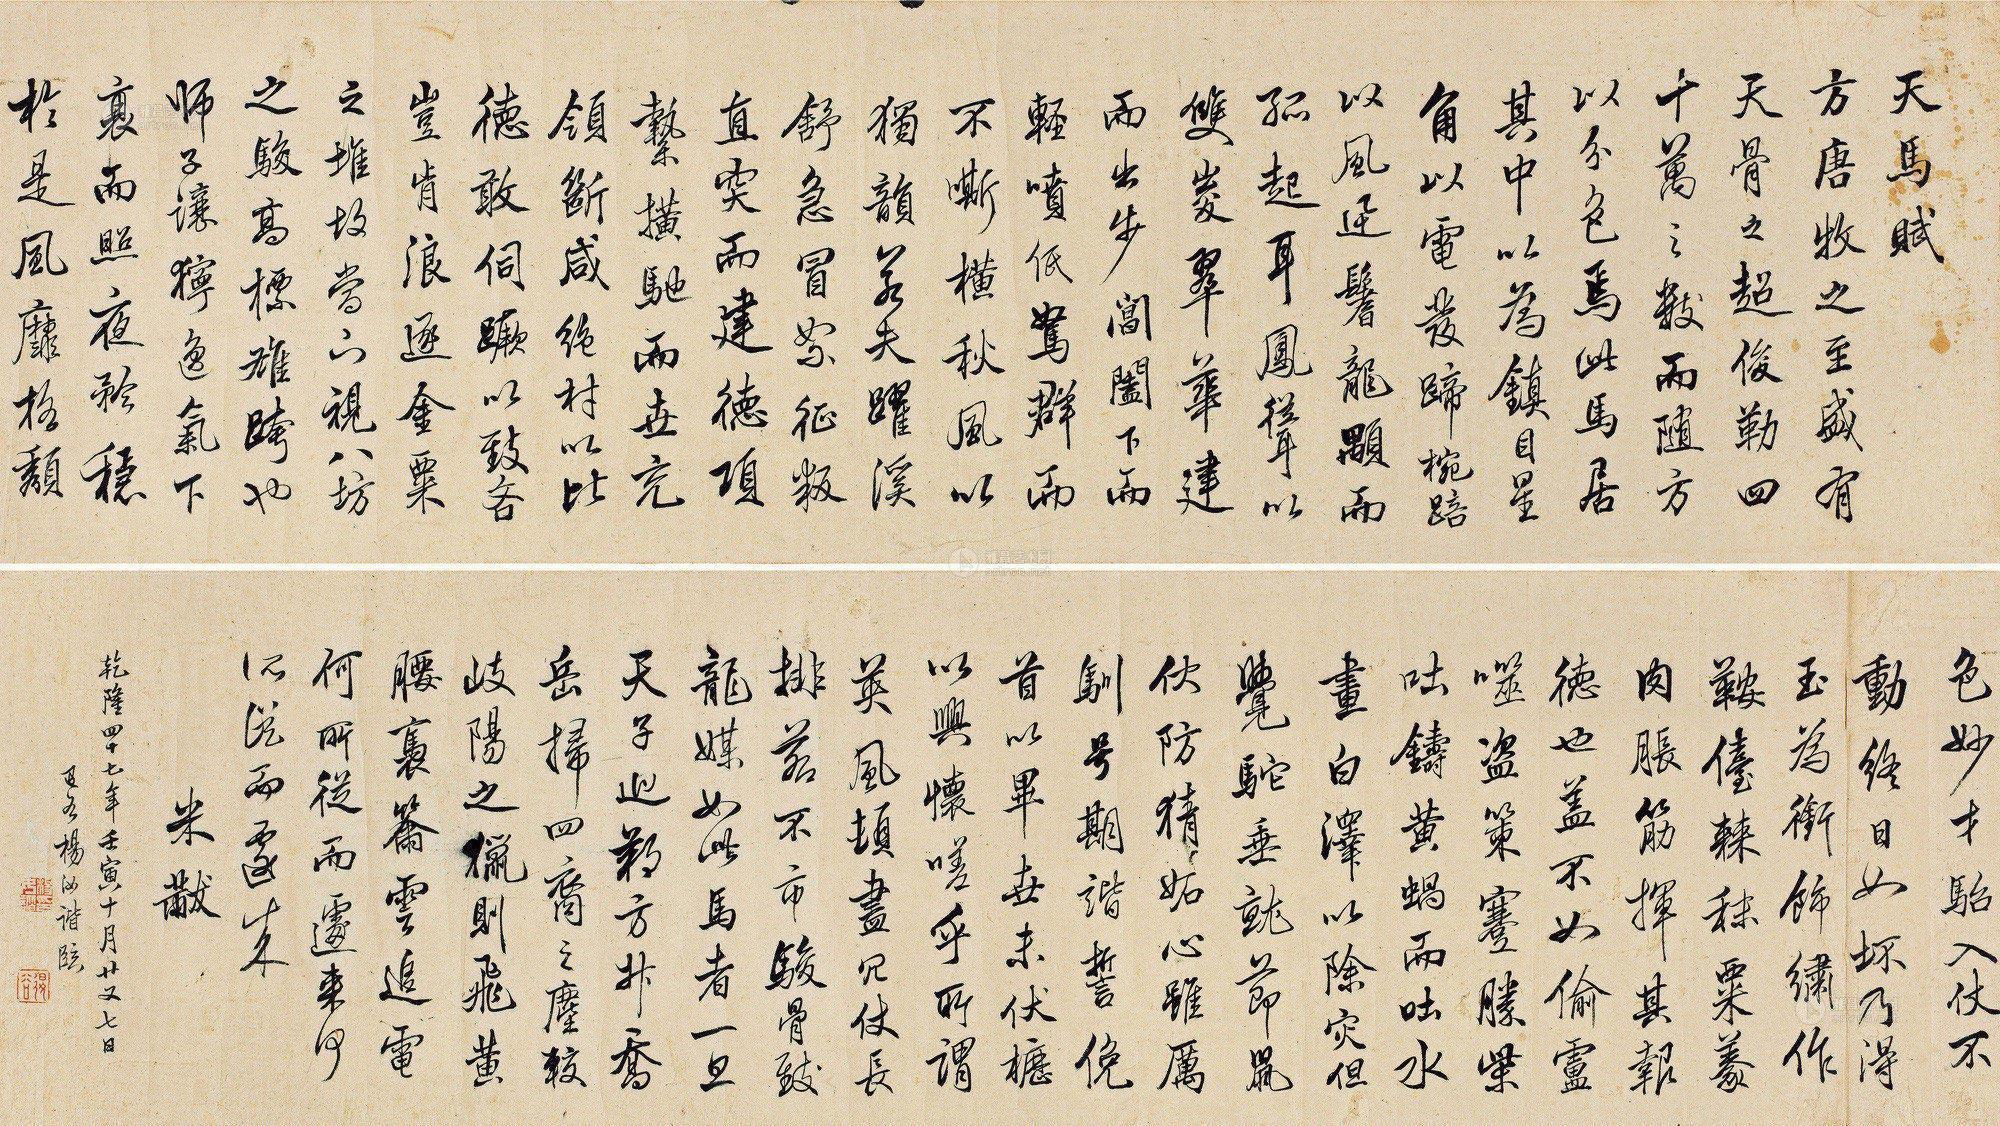 天馬賦
方唐牧之至盛有
天骨之超俊勒四
十萬之數而随方
以分色焉此馬居
其中以為鎮目星
角以電發蹄椀踣
以風迅鬐龍顒而
孤起耳鳳聳以
雙峻翠華建
而出步閶闔下而
輕噴低駑群而
不嘶横秋風以
獨韻若夫躍溪
舒急冒絮征叛
直突而建德項
縶横馳而世充
領斷咸絶材以比
德敢伺蹶以致吝
豈肯浪逐金粟
之堆故當下視八坊
之駿高標雄跨也
師子讓獰逸氣下
衰而照夜矜穏
於是風靡格頽
色妙才駘入仗不
動終日如坯乃得
玉為銜飾繡作
鞍儓棘秣粟豢
肉脹筋揮其報
德也盖不如偷盧
噬盗策蹇勝柴
吐鑄黄蝸而吐水
畫白澤以除灾但
覺駝垂就節鼠
伏防猜妬心雖厲
馴号期諧誓俛
首以畢世未伏櫪
以興懷嗟乎所謂
英風頓盡冗仗長
排若不市駿骨致
龍媒如此馬者一旦
天子巡朔方升喬
岳掃四裔之塵較
岐陽之獵則飛黄
腰褭籋雲追電
何所從而遽來何
所從而遽來
米黻
乾隆四十七年壬寅十月廿又七日
楊汝諧臨